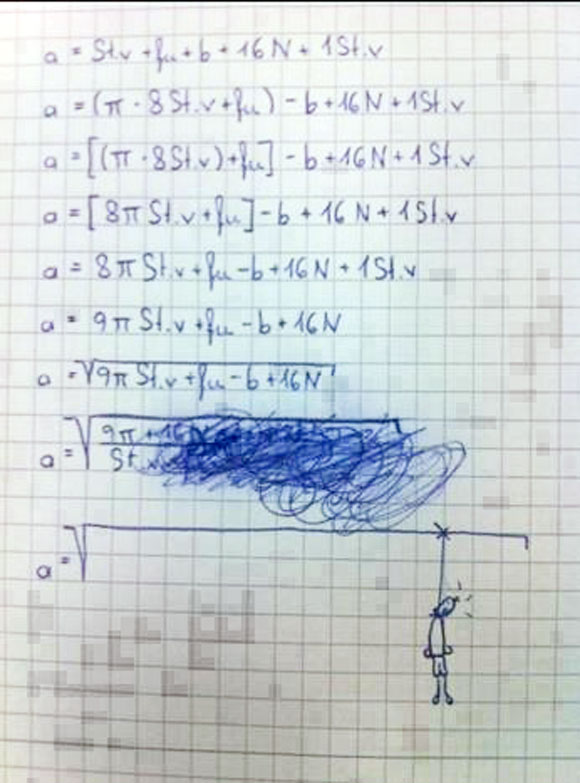 a = St.v + fu + b + 16N + 1St.v
a = (π · 8St.v + fu) - b + 16N + 1St.v
a = [(π · 8St.v) + fu] - b + 16N + 1St.v
a = [8π St.v + fu] - b + 16N + 1St.v
a = 8π St.v + fu - b + 16N + 1St.v
a = 9π St.v + fu - b + 16N
a = √9π St.v + fu - b + 16N
a = √9π + 16N
St.
a = √